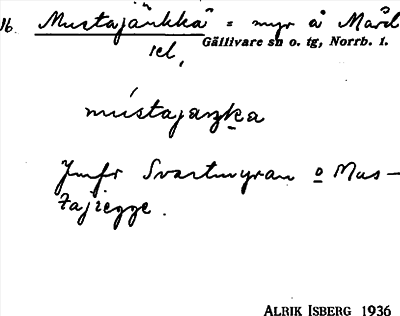 16. Mustajänkkä = myr å Mårl
Gällivare sn o. tg, Norrb. l.
mustajaŋka
Jmfr Svartmyran o Mus-
tajiegge.
ALRIK ISBERG 1936